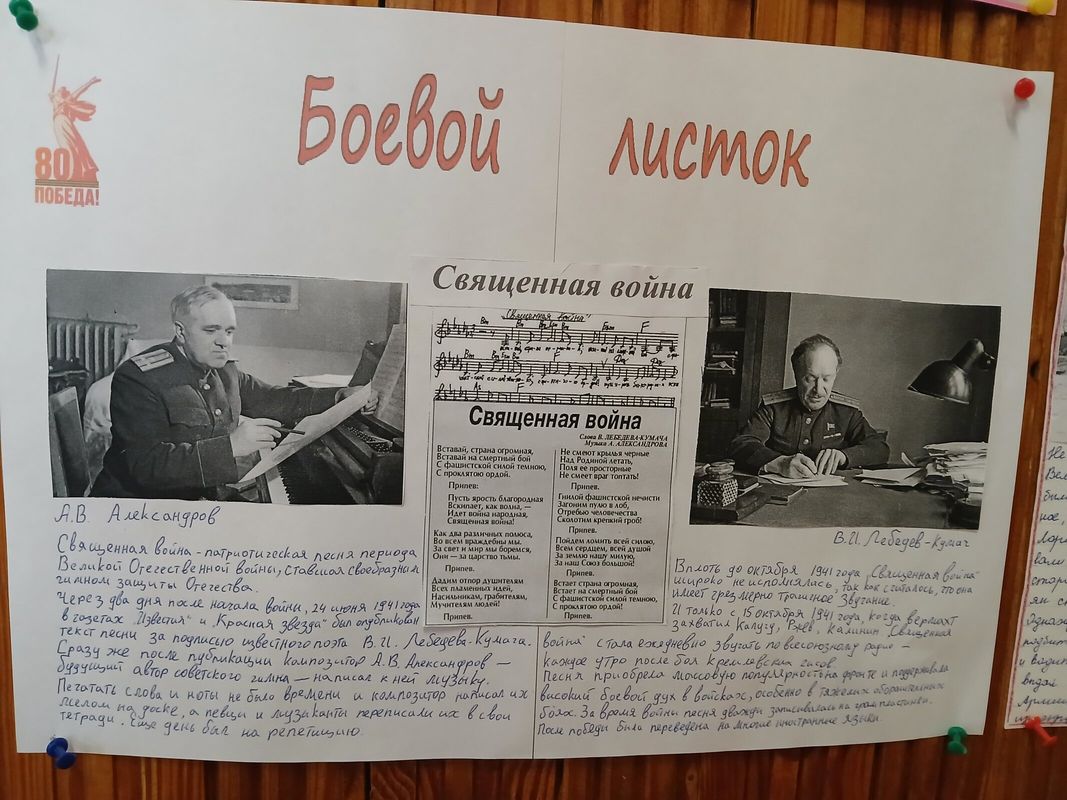 80
ПОБЕДА!
Боевой листок
Священная война
"Священная война"
Священная война
Слова В. ЛЕБЕДЕВА-КУМАЧА
Музыка А. АЛЕКСАНДРОВА
Вставай, страна огромная,
Вставай на смертный бой
С фашистской силой темною,
С проклятою ордой.
Припев:
Пусть ярость благородная
Вскипает, как волна, —
Идет война народная,
Священная война!
Как два различных полюса,
Во всем враждебны мы.
За свет и мир мы боремся,
Они — за царство тьмы.
Припев.
Дадим отпор душителям
Всех пламенных идей,
Насильникам, грабителям,
Мучителям людей!
Припев.
Не смеют крылья черные
Над Родиной летать,
Поля ее просторные
Не смеет враг топтать!
Припев.
Гнилой фашистской нечисти
Загоним пулю в лоб,
Отребью человечества
Сколотим крепкий гроб!
Припев.
Пойдем ломить всей силою,
Всем сердцем, всей душой
За землю нашу милую,
За наш Союз большой!
Припев.
Встает страна огромная,
Встает на смертный бой
С фашистской силой темною,
С проклятою ордой!
Припев.
А.В. Александров
Священная война - патриотическая песня периода
Великой Отечественной войны, ставшая своеобразным
гимном защиты Отечества.
Через два дня после начала войны, 24 июня 1941 года
в газетах "Известия" и "Красная звезда" был опубликован
текст песни за подписью известного поэта В.И. Лебедева-Кумача.
Сразу же после публикации композитор А.В. Александров –
будущий автор советского гимна – написал к ней музыку.
Печатать слова и ноты не было времени и композитор написал их
мелом на доске, а певцы и музыканты переписали их в свои
тетради. Еще день был на репетицию.
В.И. Лебедев-Кумач
Вплоть до октября 1941 года "Священная война"
широко не исполнялась, так как считалось, что она
имеет чрезмерно трагичное звучание.
И только с 15 октября 1941 года, когда вермахт
захватил Калугу, Ржев, Калинин "Священная
война" стала ежедневно звучать по всесоюзному радио –
каждое утро после боя кремлевских часов.
Песня приобрела массовую популярность на фронте и поддерживала
высокий боевой дух в войсках, особенно в тяжелых оборонительных
боях. За время войны песня дважды записывалась на грампластинки.
После победы была переведена на многие иностранные языки.